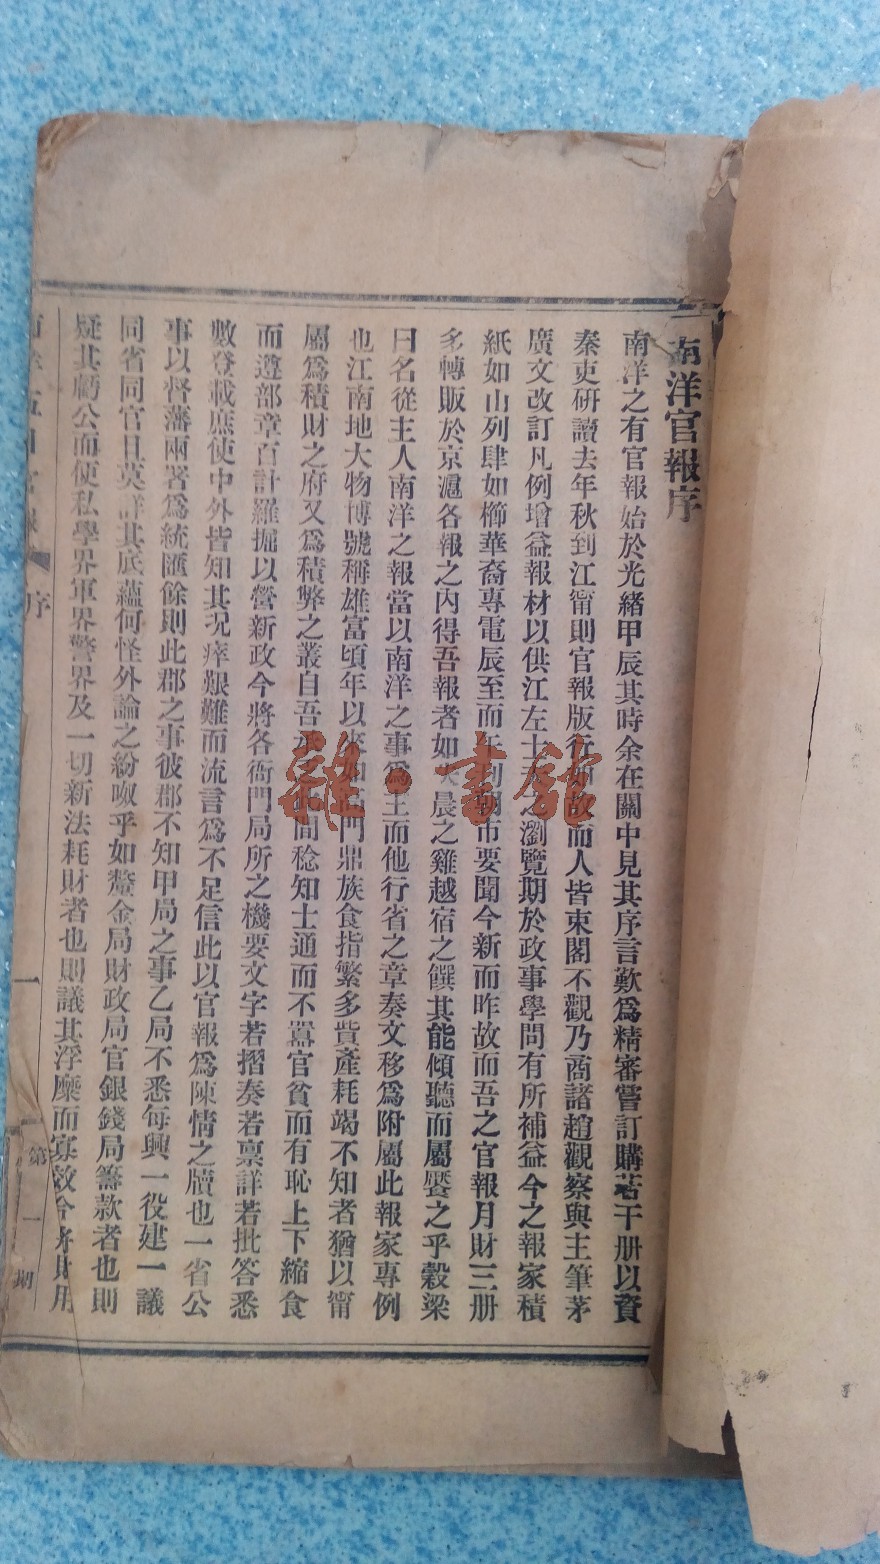 南洋官報序
南洋之有官報始於光緒甲辰其時余在關中見其序言歎爲精審嘗訂購若干册以資
秦吏研讀去年秋到江甯則官報版行如故而人皆束閣不觀乃商諸趙觀察與主筆茅
廣文改訂凡例增益報材以供江左士夫之瀏覽期於政事學問有所補益今之報家積
紙如山列肆如櫛華裔專電辰至而午刊朝市要聞今新而昨故而吾之官報月財三册
多轉販於京滬各報之內得吾報者如失晨之雞越宿之饌其能傾聽而屬饜之乎穀梁
曰名從主人南洋之報當以南洋之事爲主而他行省之章奏文移爲附屬此報家專例
也江南地大物博號稱雄富頃年以來如高門鼎族食指繁多貲產耗竭不知者猶以甯
屬爲積財之府又爲積弊之叢自吾 間稔知士通而不囂官貧而有恥上下縮食
而遵部章百計羅掘以營新政今將各衙門局所之機要文字若摺奏若禀詳若批答悉
數登載庶使中外皆知其况瘁艱難而流言爲不足信此以官報爲陳情之牘也一省公
事以督藩兩署爲統匯餘則此郡之事彼郡不知甲局之事乙局不悉每興一役建一議
同省同官且莫詳其底蘊何怪外論之紛呶乎如釐金局財政局官銀錢局籌款者也則
疑其虧公而便私學界軍界警界及一切新法耗財者也則議其浮糜而寡效合 財用
序
一
第一期
雜·書館